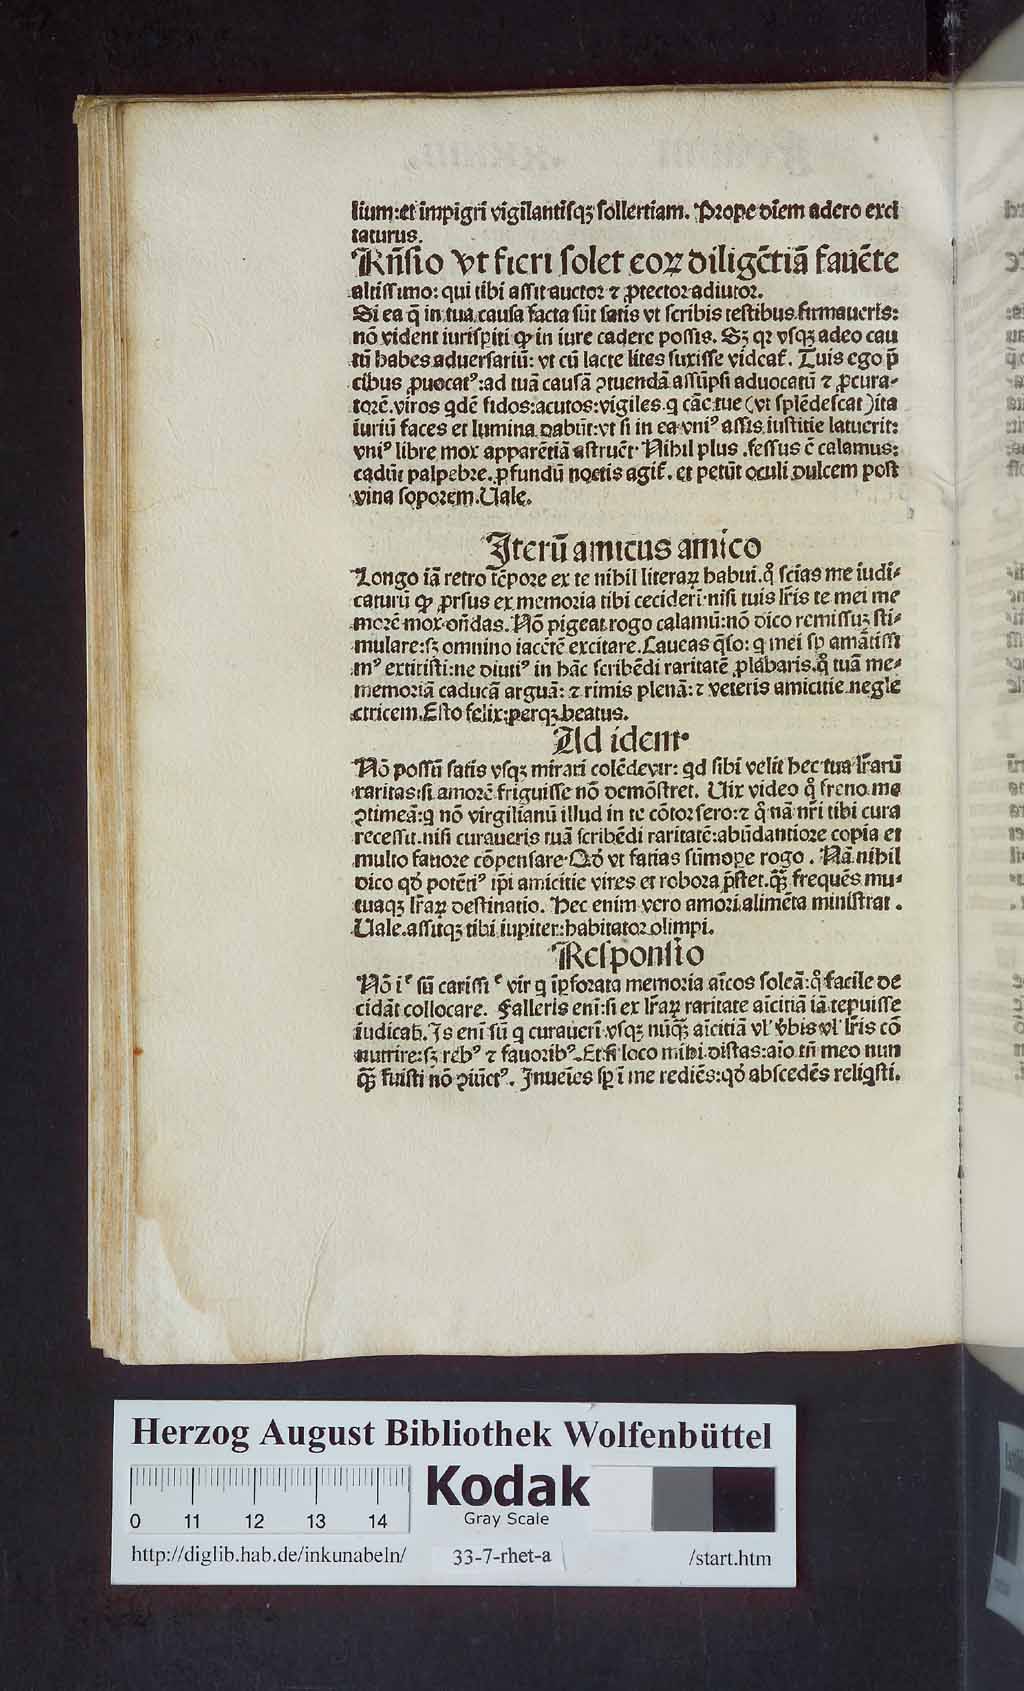 lium:et impigri vigilantisqꝫ sollertiam. Prope diem adero exci
taturus.
Rñsio vt fieri solet eoꝝ diligẽtiã fauẽte
altissimo: qui tibi assit auctor ⁊ ꝓtector adiutor.
Si ea q̃ in tua causa facta sũt satis vt scribis testibus firmaueris:
nõ vident iurisꝑiti ꝙ in iure cadere possis. Sꝫ qꝛ vsqꝫ adeo cau
tũ habes aduersariũ: vt cũ lacte lites suxisse videat᷑. Tuis ego p̃
cibus ꝓuocatꝰ:ad tuã causã ꝯtuendã assũpsi aduocatũ ⁊ ꝓcura-
torẽ.viros qdẽ fidos:acutos:vigiles.q cãe tue (vt splẽdescat)ita
iuriũ faces et lumina dabũt:vt si in ea vniꝰ assis iustitie latuerit:
vniꝰ libre mox apparẽtiã astruẽt. Nihil plus .fessus ẽ calamus:
cadũt palpebre. ꝓfundũ noctis agit᷑. et petũt oculi dulcem post
vina soporem.Uale.
Iterũ amicus amico
Longo iã retro tẽpore ex te nihil literaꝝ habui.qͦ scias me iudi-
caturũ ꝙ ꝓrsus ex memoria tibi cecideri.nisi tuis lr̃is te mei me
morẽ mox oñdas. Nõ pigeat rogo calamũ:nõ dico remissuꝫ sti-
mulare:sꝫ omnino iacẽtẽ excitare. Caueas q̃so: q mei sꝑ amãtissi
mꝰ extitisti:ne diutiꝰ in hãc scribẽdi raritatẽ ꝓlabaris.qͦ tuã me-
memoriã caducã arguã: ⁊ rimis plenã: ⁊ veteris amicitie negle
ctricem.Esto felix:perqꝫ beatus.
Ad idem
Nõ possũ satis vsqꝫ mirari colẽde vir: qd sibi velit hec tua lr̃arũ
raritas:si amorẽ friguisse nõ demõstret. Uix video qͦ freno me
ꝯtineã:q nõ virgilianũ illud in te cõtorsero:⁊ qͦ nã nr̃i tibi cura
recessit.nisi curaueris tuã scribẽdi raritatẽ:abũdantiore copia et
multo fauore cõpensare. Qd̓ vt facias sũmope rogo . Nã nihil
dico qd̓ potẽtiꝰ ip̃i amicitie vires et robora p̃stet.qꝫ̃ frequẽs mu-
tuaqꝫ lr̃aꝝ destinatio. Hec enim vero amori alimẽta ministrat .
Uale.assitqꝫ tibi iupiter:habitator olimpi.
Responsio
Nõ iˢ sũ carissiᵉ vir q iꝑforata memoria aĩcos soleã:qͦ facile de
cidãt collocare. Falleris eni:si ex lr̃aꝝ raritate aĩcitiã iã tepuisse
iudicas. Is eni sũ q curaueri vsqꝫ nũqꝫ̃ aĩcitiã vl̓ v̓bis vl̓ lr̃is cõ
nutrire:sꝫ rebꝰ ⁊ fauoribꝰ. Et si loco mihi distas:aĩo tñ meo nun
qꝫ̃ fuisti nõ ꝯiũctꝰ. Inueies sꝑ ĩ me rediẽs:qd̓ abscedẽs reliqsti.
Herzog August Bibliothek Wolfenbüttel
Kodak
Gray Scale
0 11 12 13 14
http://diglib.hab.de/inkunabeln/ 33-7-rhet-a /start.htm